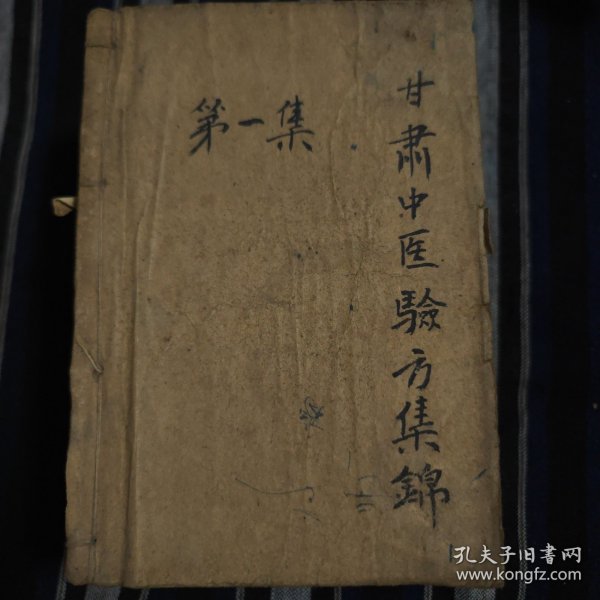 甘肃中医驗方集錦
第一集
孔夫子旧書网
www.kongfz.com